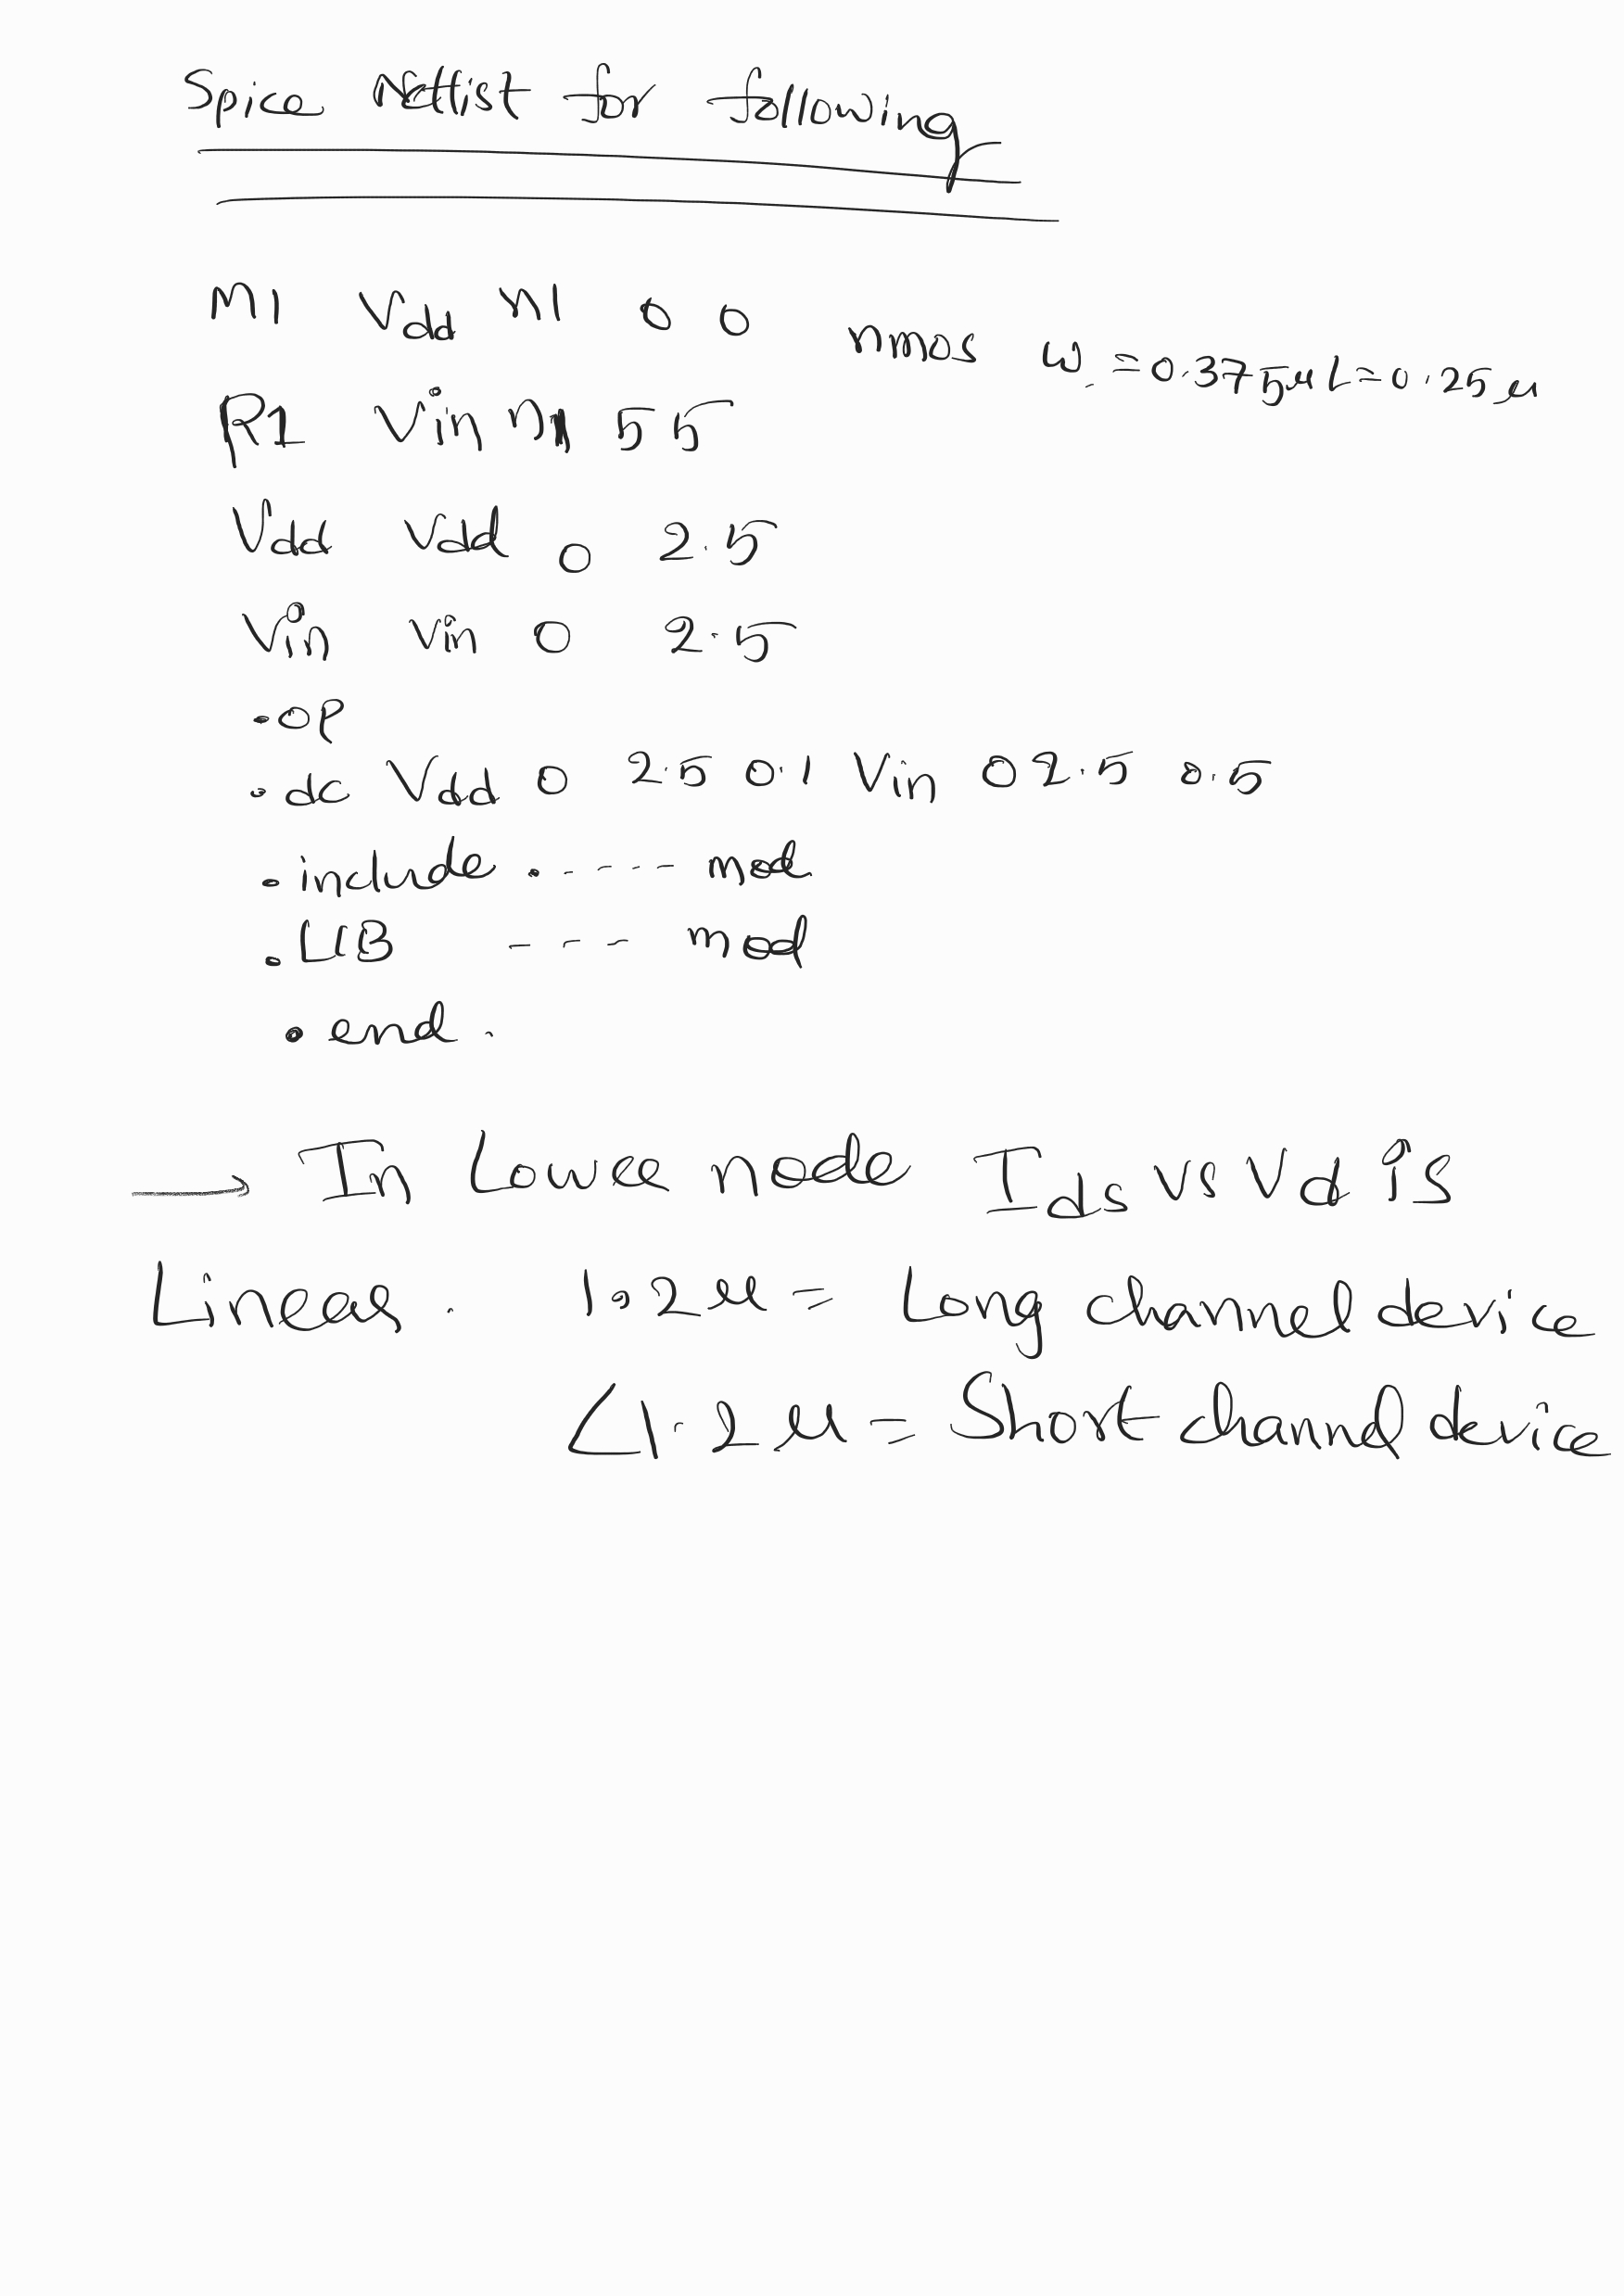 Spice Netlist for following
M1 Vdd n1 0 0 nmos w=0.375µ l=0.25µ
R1 Vin n1 55
Vdd Vdd 0 2.5
Vin Vin 0 2.5
.op
.dc Vdd 0 2.5 0.1 Vin 0 2.5 0.5
.include . - - - - mod
.LIB - - - mod
.end .
→ In Lower node Ids vs Vd is
Linear . 1.2µ = Long channel device
<1.2µ = Short channel device